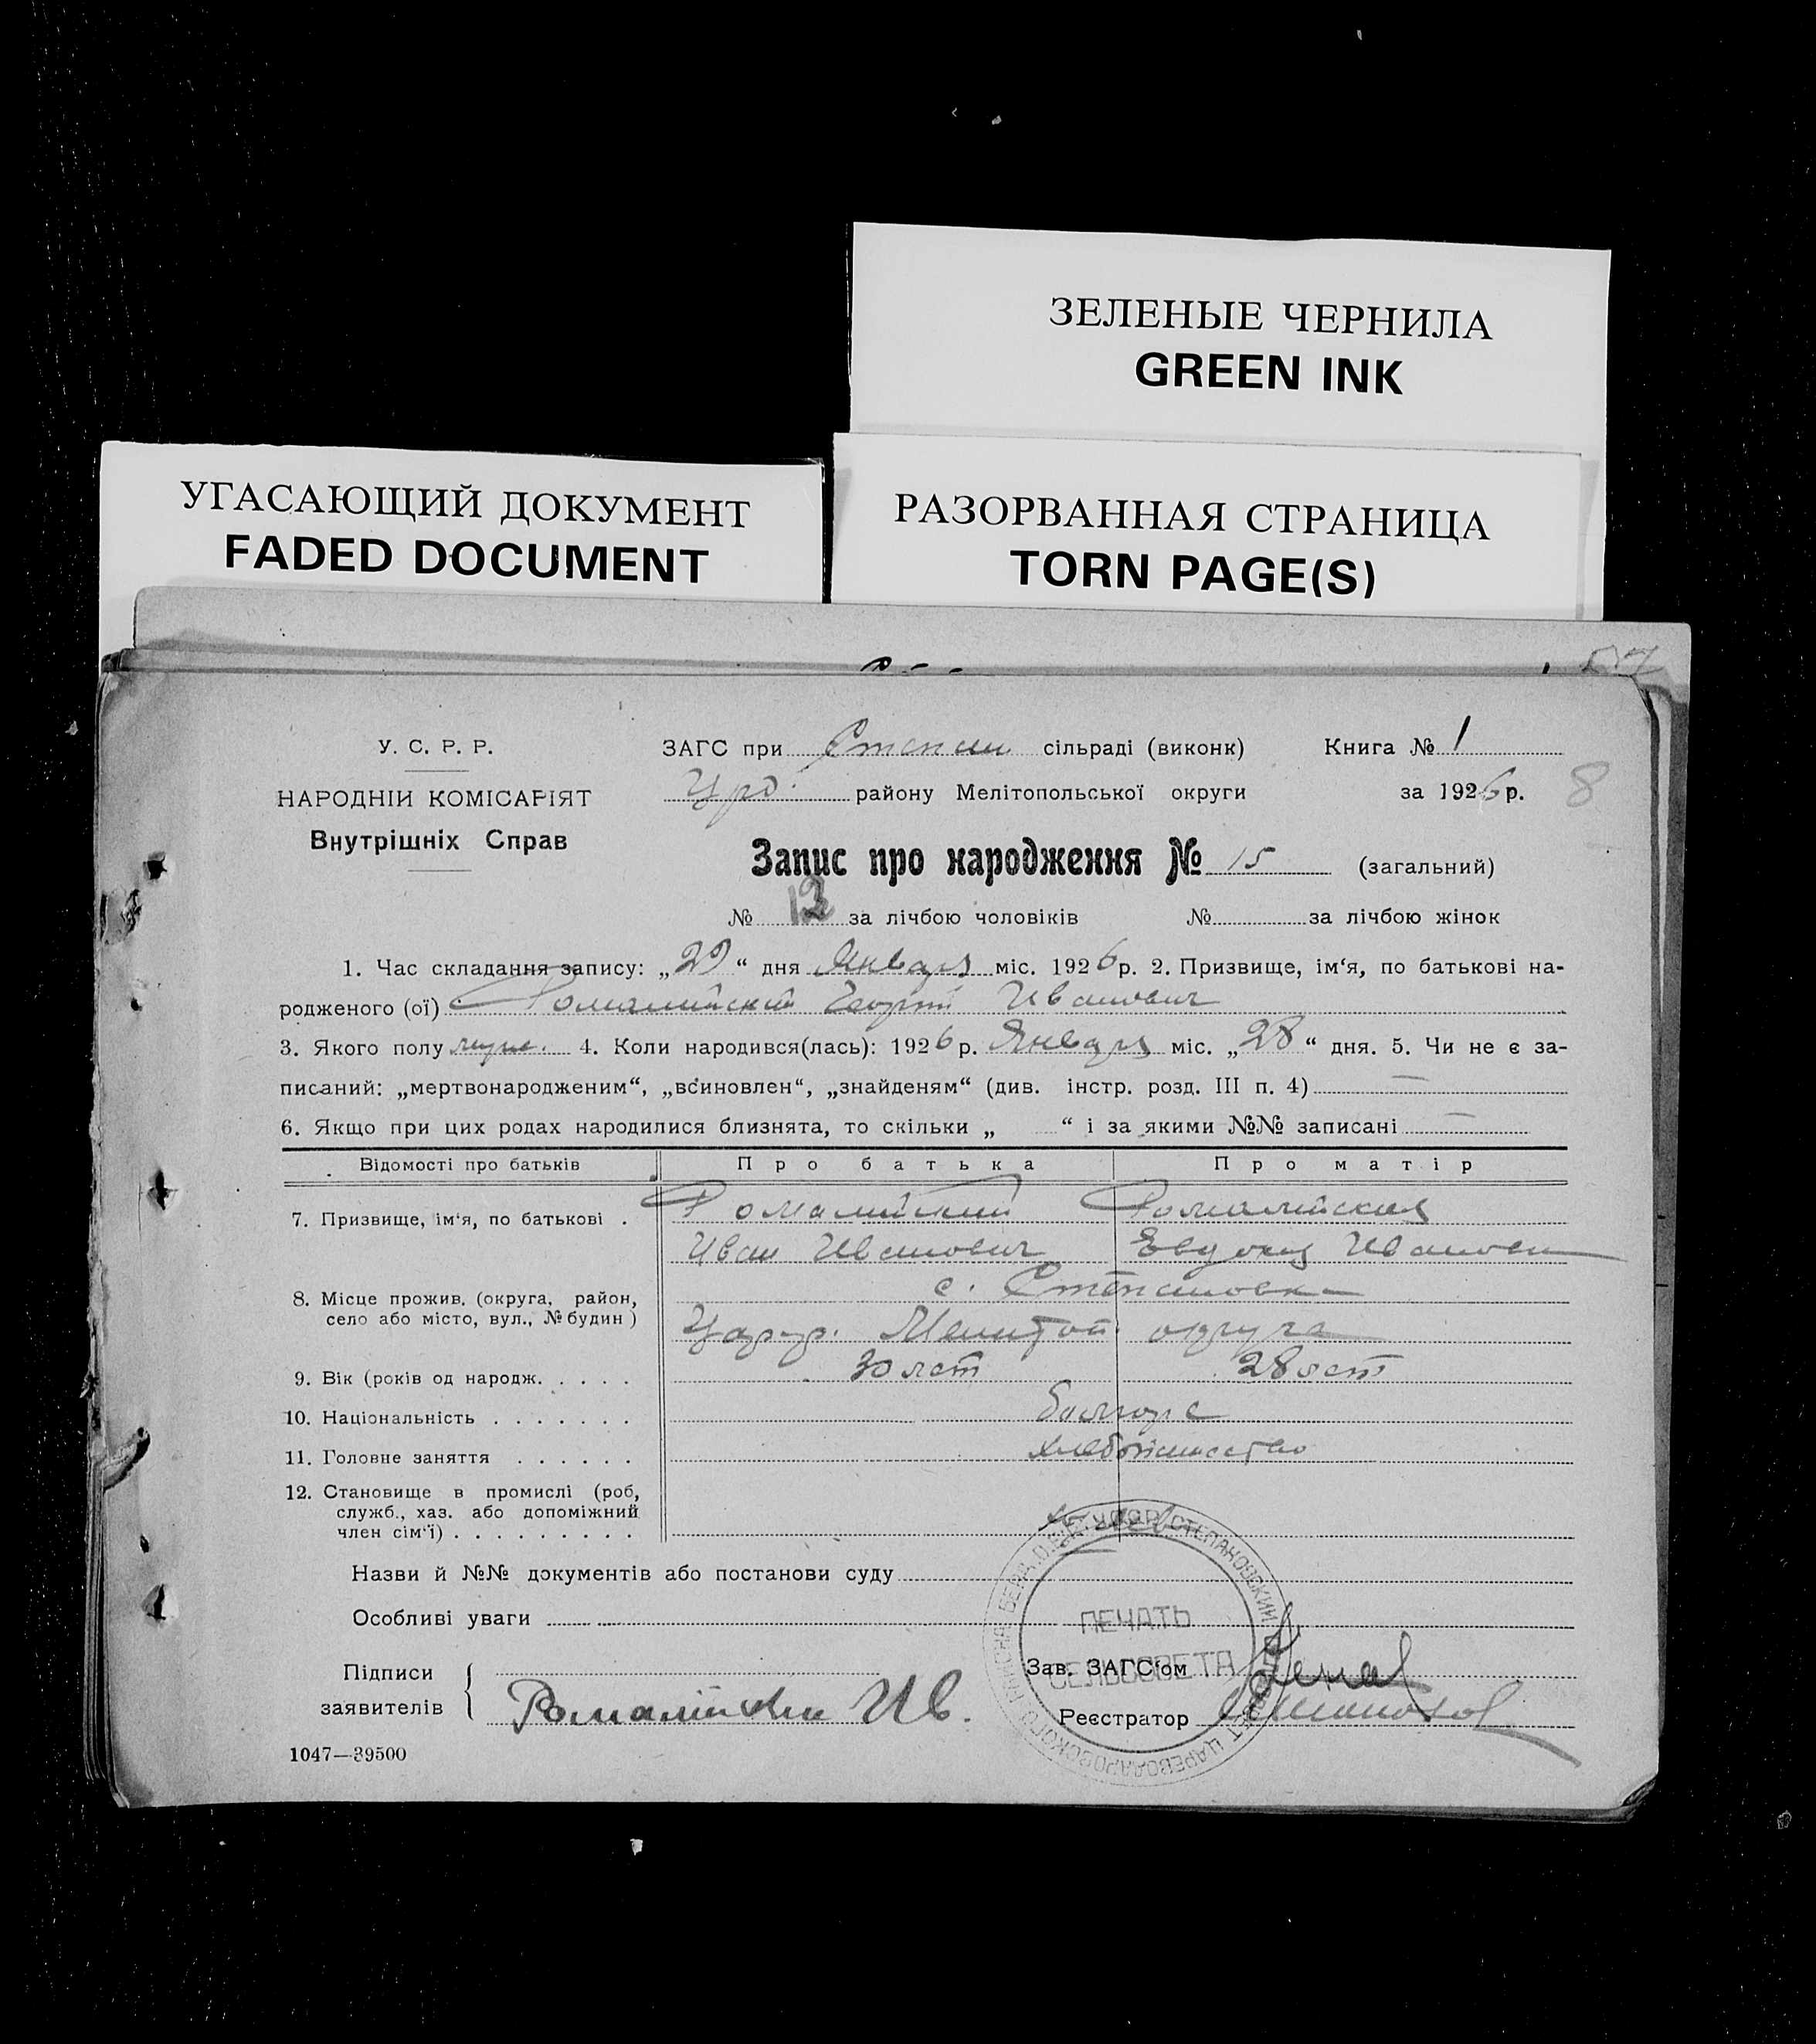 ЗЕЛЕНЫЕ ЧЕРНИЛА
GREEN INK
УГАСАЮЩИЙ ДОКУМЕНТ
FADED DOCUMENT
РАЗОРВАННАЯ СТРАНИЦА
TORN PAGE(S)
У. С. Р. Р.
НАРОДНІИ КОМІСАРІЯТ
Внутрішніх Справ
ЗАГС при Степан сільраді (виконк) Книга № 1
району Мелітопольської округи за 1926 р. 8
Запис про народження № 15 (загальний)
№ за лічбою чоловіків № за лічбою жінок
1. Час складання запису: „29“ дня Января міс. 1926 р. 2. Призвище, ім‘я, по батькові на-
родженого (ої) Ромалийский Георгий Иванович
3. Якого полу муж. 4. Коли народився(лась): 1926 р. Января міс. „28“ дня. 5. Чи не є за-
писаний: „мертвонародженим“, „всиновлен“, „знайденям“ (див. інстр. розд. III п. 4) —
6. Якщо при цих родах народилися близнята, то скільки „ “ і за якими №№ записані —
Відомості про батьків Про батька Про матір
7. Призвище, ім‘я, по батькові . Ромалийский Ромалийская
Иван Иванович Евдокия Ивановн
8. Місце прожив. (округа, район, с. Степановка
село або місто, вул., № будин) Мелитоп. округа
9. Вік (років од народж. . . . . 30 лет 28 лет
10. Національність . . . . . . . болгаре
11. Головне заняття . . . . . . хлебопашество
12. Становище в промислі (роб,
служб., хаз. або допоміжний
член сім‘ї) . . . . . . . . .
Назви й №№ документів або постанови суду
Особливі уваги
ПЕЧАТЬ
СЕЛЬСОВЕТА
СТЕПАНОВСКИЙ
ЦАРЕВОДАРОВСКОГО
Підписи
заявителів Ромалийский Ив.
Зав. ЗАГС‘ом
Реєстратор
1047—39500